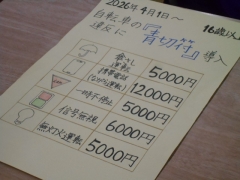 2026年4月1日～
16歳以
自転車の『青切符』導入
違反に
傘さし運転 5000円
携帯電話ながら運転 12000円
一時不停止 5000円
信号無視 6000円
無灯火運転 5000円